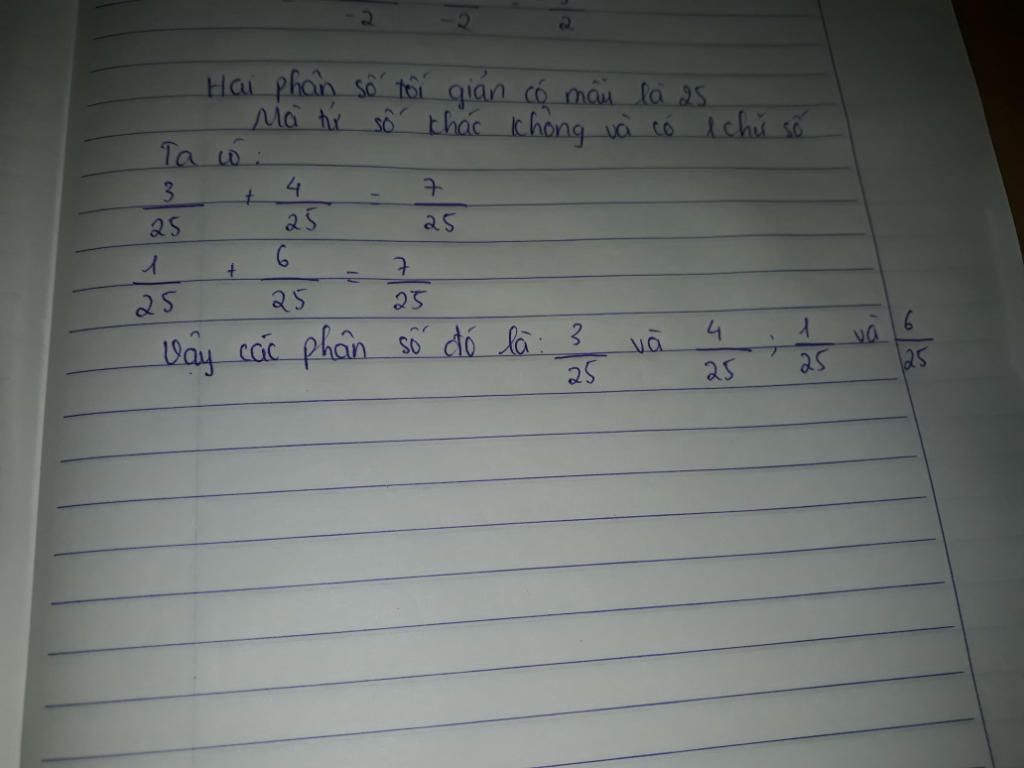 -2 -2 2
Hai phân số tối giản có mẫu là 25
Mà tử số khác không và có 1 chữ số
Ta có:
3/25 + 4/25 = 7/25
1/25 + 6/25 = 7/25
Vậy các phân số đó là: 3/25 và 4/25 ; 1/25 và 6/25